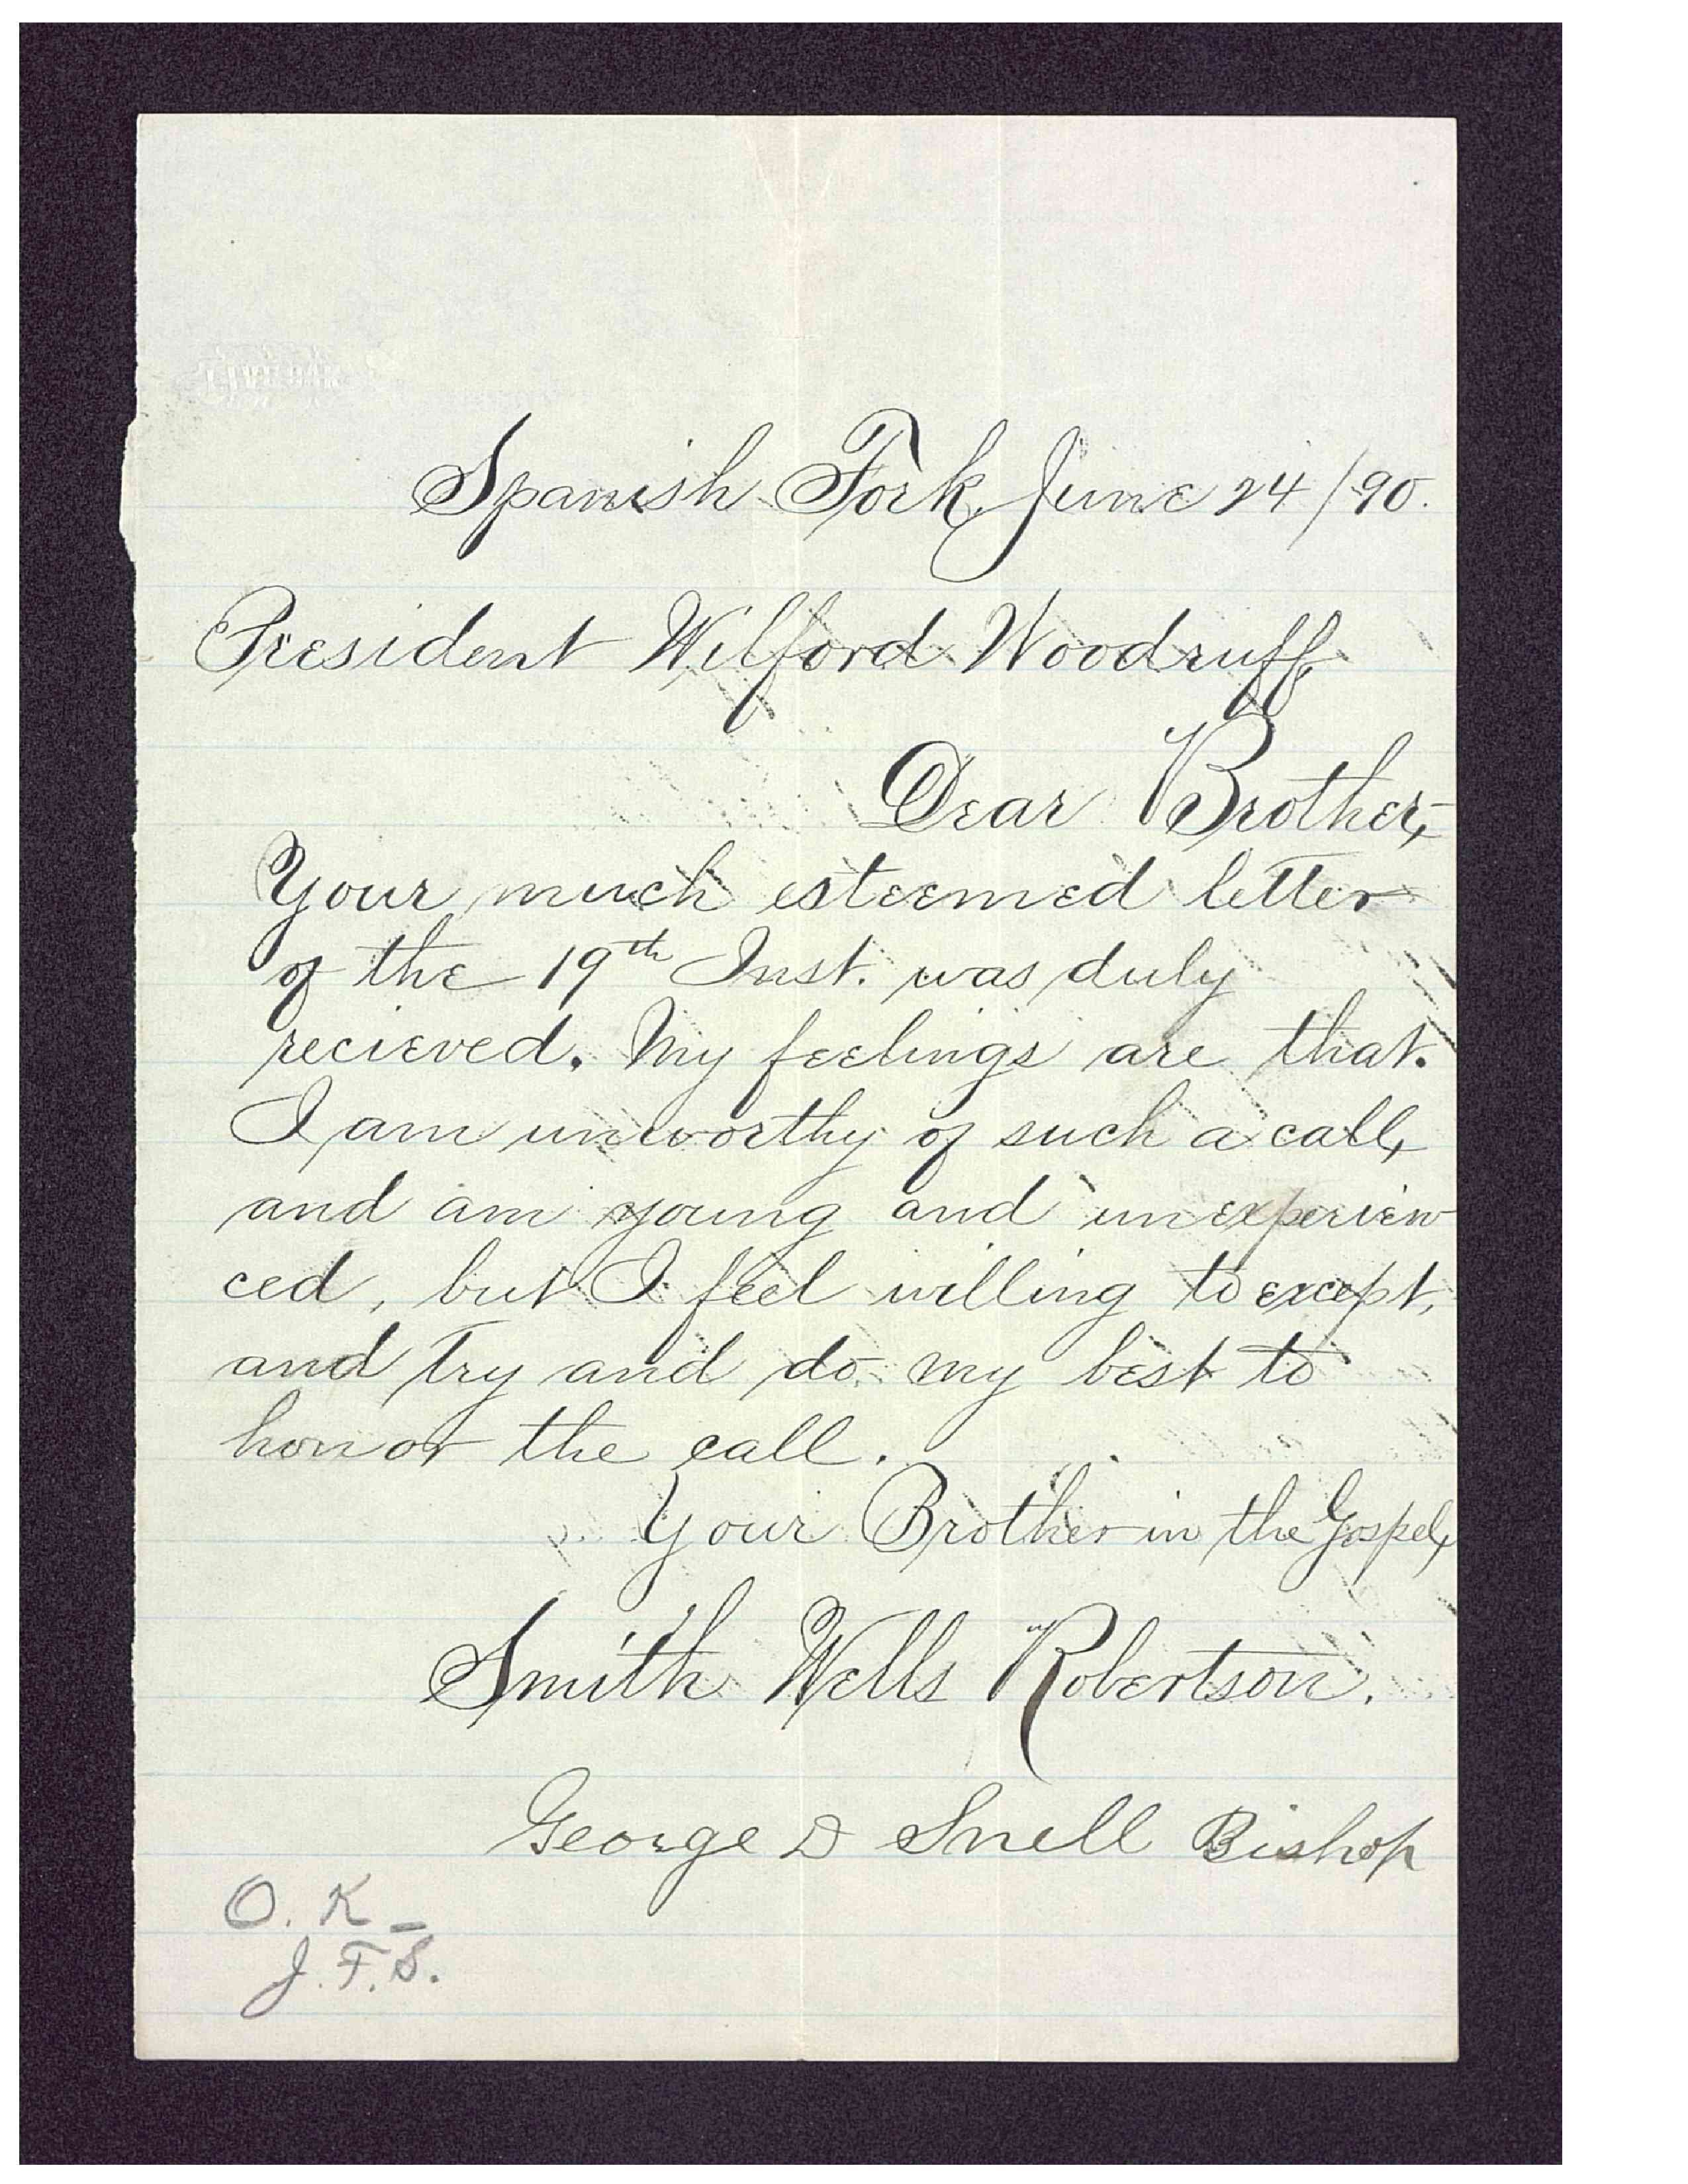 Spanish Fork, June 24/90.
President Wilford Woodruff
Dear Brother,
Your much esteemed letter
of the 19th Inst. was duly
recieved. My feelings are that.
I am unworthy of such a call,
and am young and unexperien
ced, but I feel willing to except,
and try and do my best to
honor the call.
Your Brother in the Gospel,
Smith Wells Robertson.
George D Snell Bishop
O. K –
J. F. S.